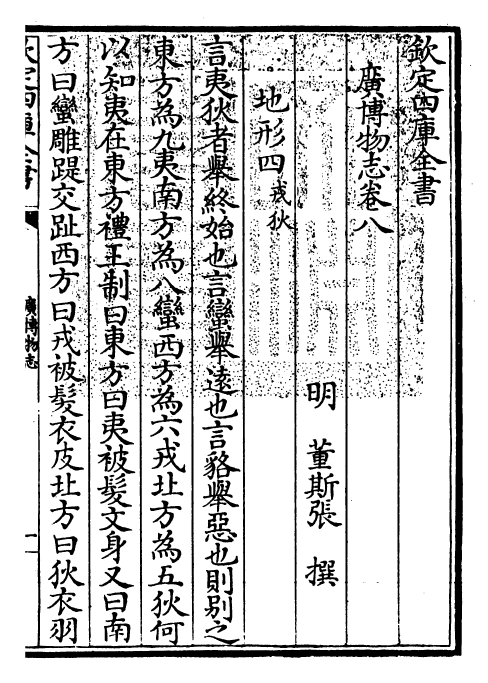 欽定四庫全書
廣博物志卷八
明　董斯張　撰
地形四戎狄
言夷狄者舉終始也言蠻舉遠也言貉舉惡也則别之
東方為九夷南方為八蠻西方為六戎北方為五狄何
以知夷在東方禮王制曰東方曰夷被髮文身又曰南
方曰蠻雕踶交趾西方曰戎被髮衣皮北方曰狄衣羽
欽定四庫全書
廣博物志
一